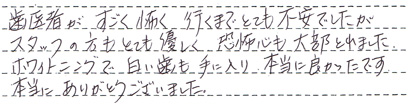 歯医者が すごく怖く 行くまでとても不安でしたが
スタッフの方もとても優しく 恐怖心も大部とれました
ホワイトニングで 白い歯も手に入り 本当に良かったです
本当に ありがとうございました。